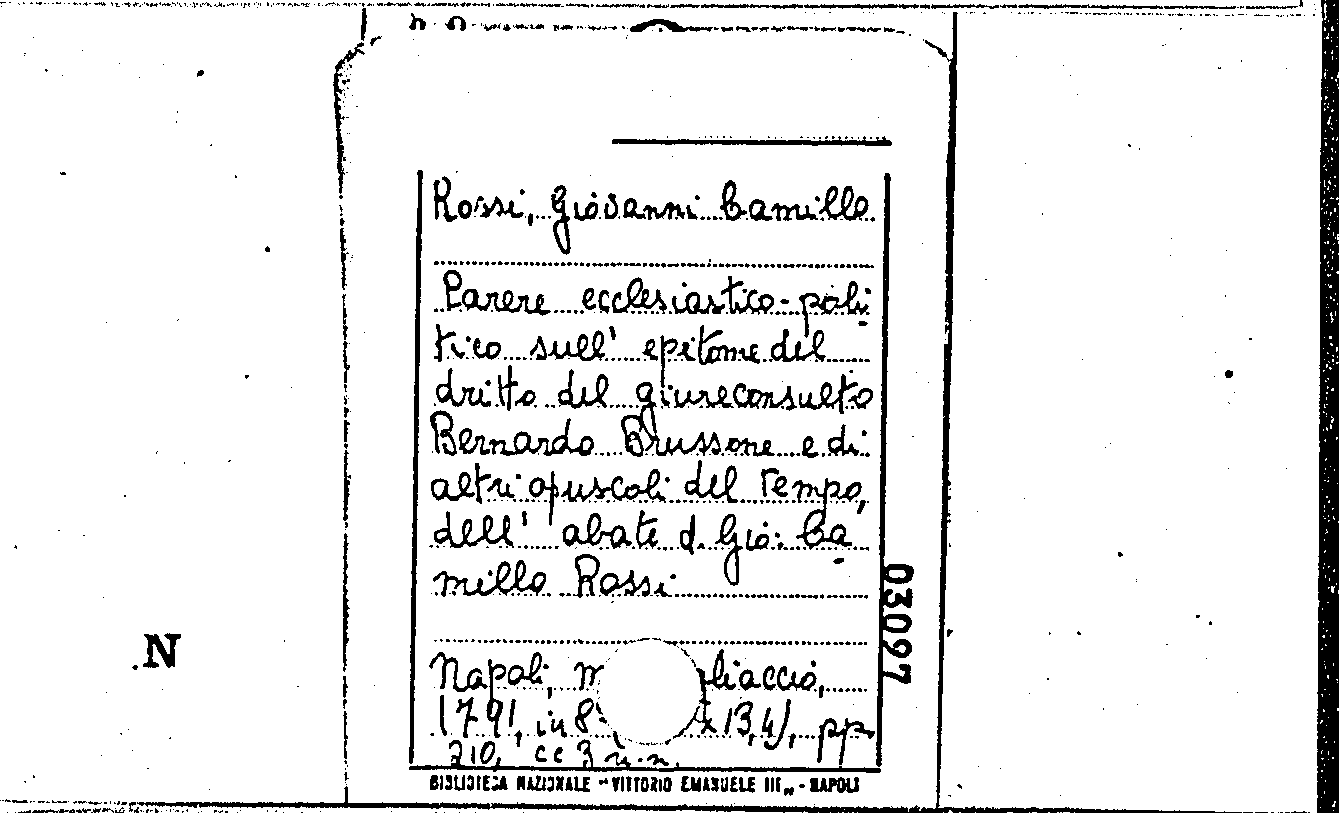 Rossi, Giovanni Camillo
Parere ecclesiastico-poli
tico sull' epitome del
dritto del giureconsulto
Bernardo Brussone e di
altri opuscoli del tempo,
dell' abate d. Gio: Ca
millo Rossi
Napoli, m liaccio,
1791, in 8° x13,4), pp.
210, cc 3 n.n.
BIBLIOTECA NAZIONALE "VITTORIO EMANUELE III„ - NAPOLI
03097
N